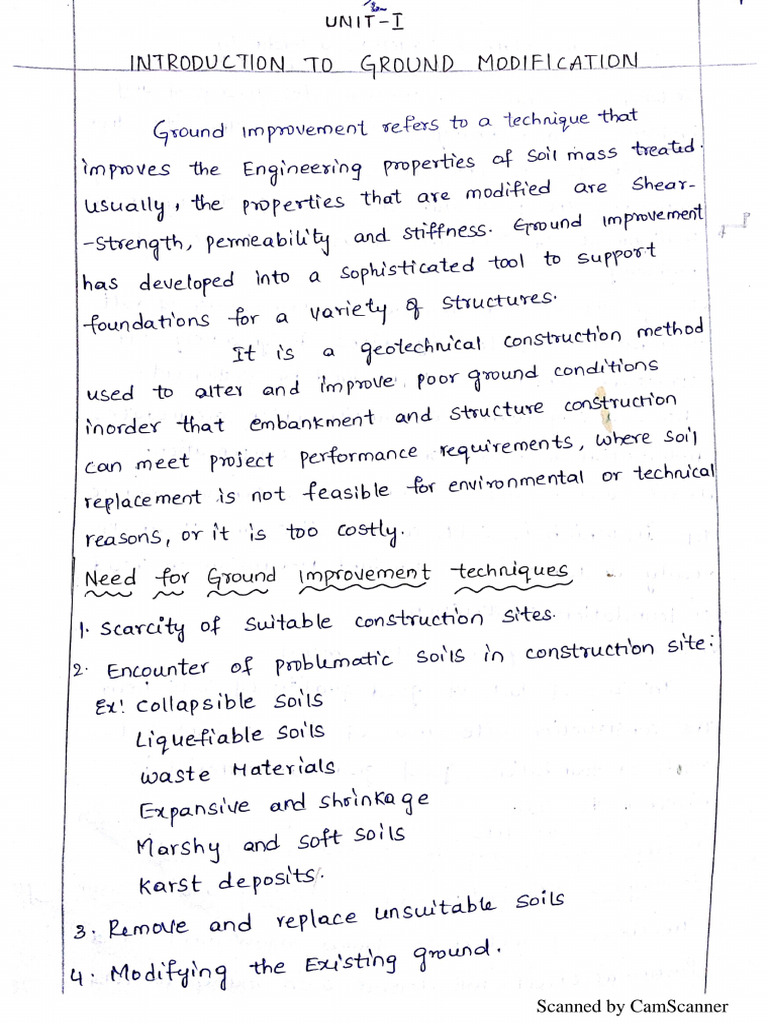 UNIT-I
INTRODUCTION TO GROUND MODIFICATION
Ground improvement refers to a technique that
improves the Engineering properties of soil mass treated.
usually, the properties that are modified are Shear-
-Strength, permeability and stiffness. Ground improvement
has developed into a sophisticated tool to support
foundations for a variety of structures.
It is a geotechnical construction method
used to alter and improve poor ground conditions
inorder that embankment and structure construction
can meet project performance requirements, where soil
replacement is not feasible for environmental or technical
reasons, or it is too costly.
Need for Ground improvement techniques
1. Scarcity of suitable construction sites.
2. Encounter of problematic soils in construction site:
Ex: Collapsible soils
Liquefiable soils
waste Materials
Expansive and shrinkage
Marshy and soft soils
Karst deposits.
3. Remove and replace unsuitable soils
4. Modifying the Existing ground.
Scanned by CamScanner